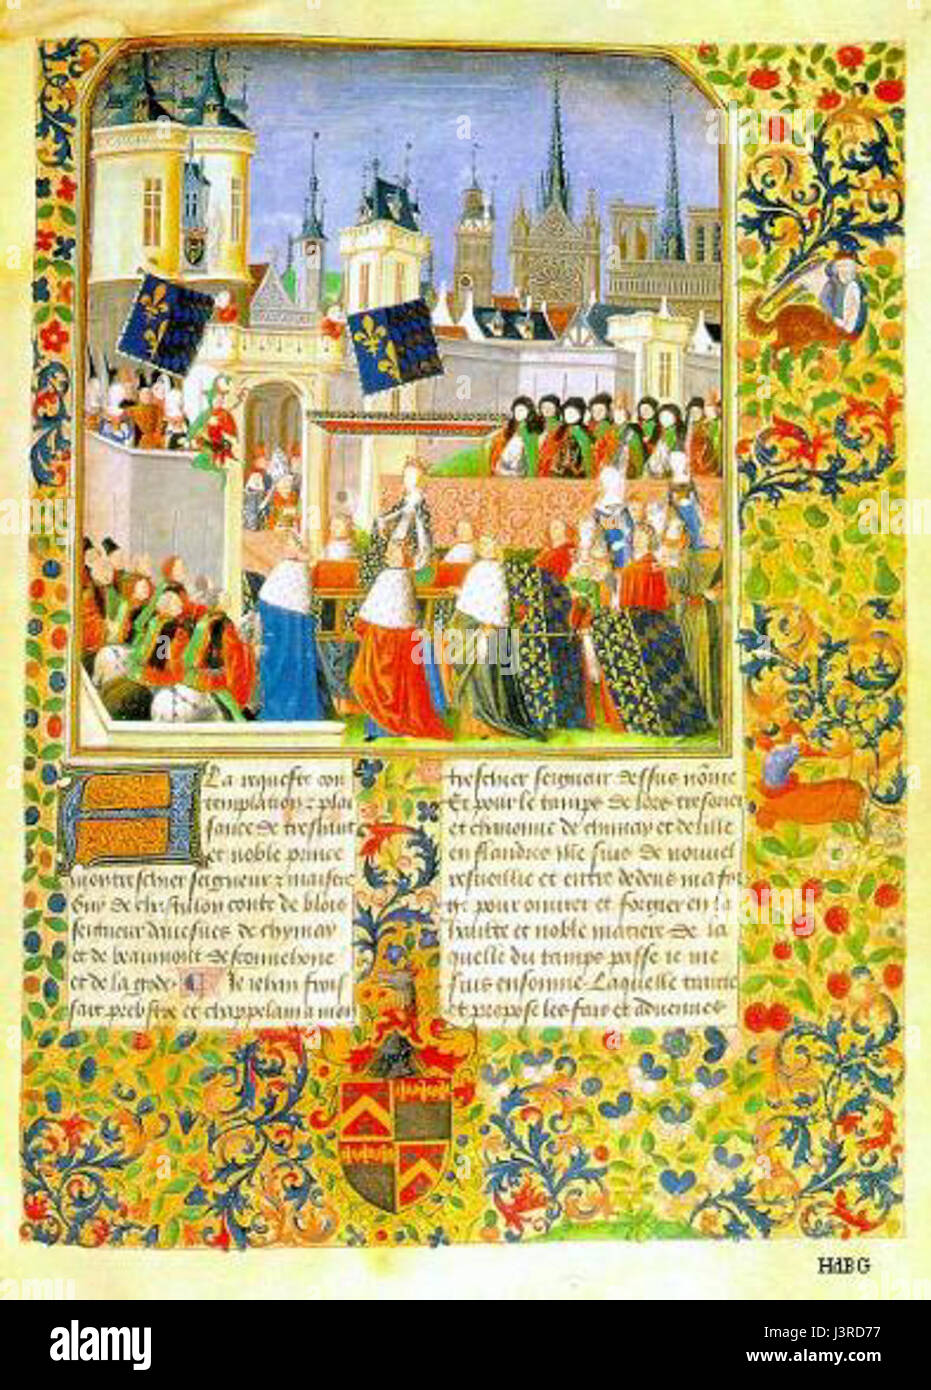 A La requeste con
templation et plai
sance de treshaut
et noble prince
mon treschier seigneur et maistre
Guy de chastillon conte de blois
seigneur davesnes de chymay
et de beaumont de sconnehove
et de la gode. Je Jehan frois
sart prebstre et chappelain a mon
treschier seigneur dessus nome
Et pour le temps de lors tresorier
et chanonne de chymay et de lille
en flandres me suis de nouvel
resveillie et entre dedens ma for
ge pour ouvrer et forgier en la
haulte et noble matiere de la
quelle du temps passe je me
suis ensonnie. Laquelle traitte
et propose les fais et advenues
HdBG
alamy
Image ID: J3RD77
www.alamy.com